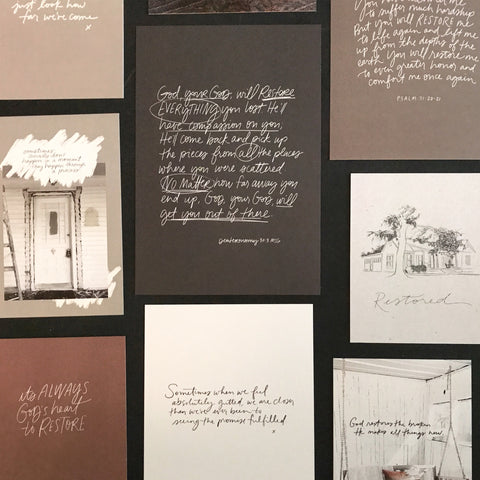 just look how
far we've come
x
to suffer much hardship
But you will RESTORE me
to life again and lift me
up from the depths of the
earth. You will restore me
to even greater honor and
comfort me once again
PSALM 71:20-21
God, your God, will Restore
EVERYTHING you lost. He'll
have compassion on you.
He'll come back and pick up
the pieces from all the places
where you were scattered
NO MATTER how far away you
end up. God, your God will
get you out of there.
Deuteronomy 30:3 MSG
sometimes
miracles don't
happen in a moment
they happen through
a process
Restored
it's ALWAYS
God's heart
to RESTORE
Sometimes when we feel
absolutely gutted, we are closer
than we've ever been to
seeing the promise fulfilled
x
God restores the broken
He makes all things new.